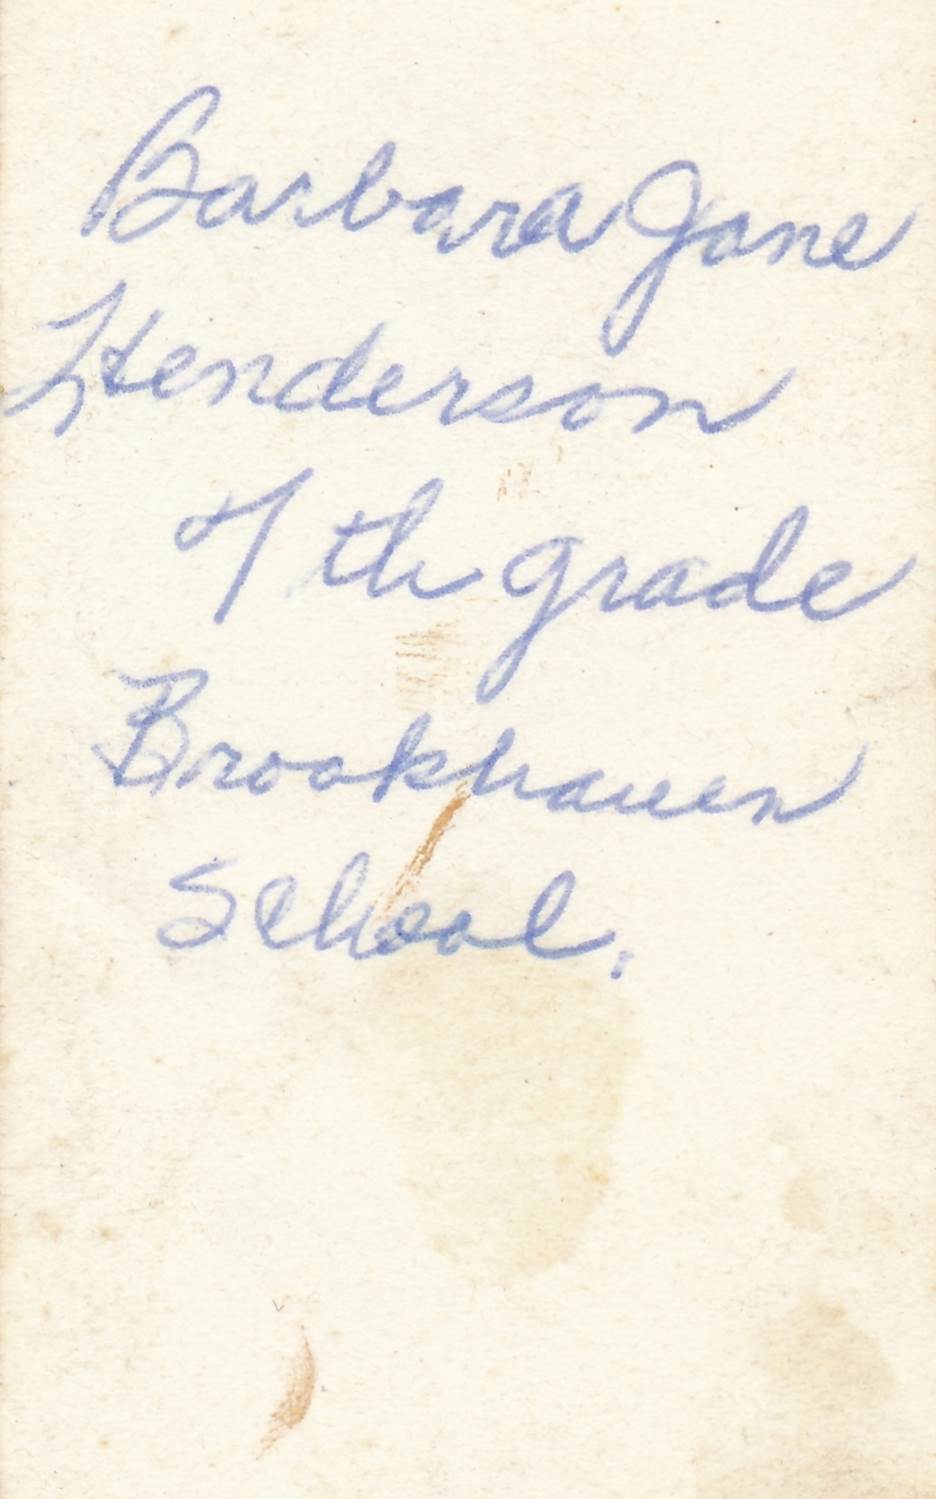 Barbara Jane
Henderson
7th grade
Brookhaven
School.